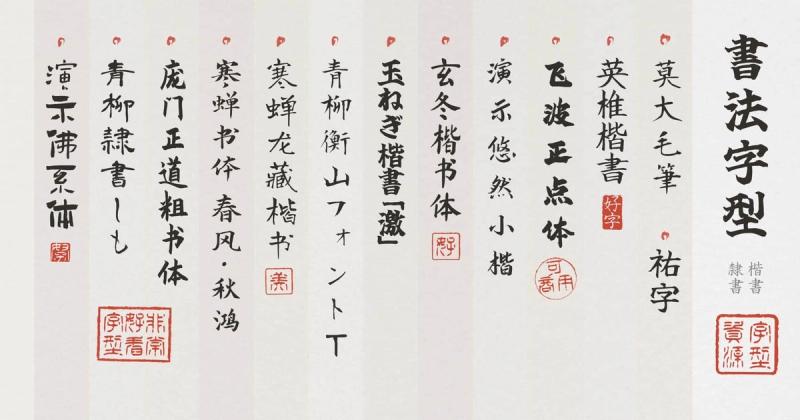 書法字型
楷書
隸書
字型
資源
莫大毛筆
祐字
英椎楷書
好字
飞波正点体
可用
商
演示悠然小楷
玄冬楷书体
好
玉ねぎ楷書「激」
青柳衡山フォントT
寒蝉龙藏楷书
美
寒蝉书体春风·秋鸿
庞门正道粗书体
青柳隷書しも
非常
好看
字型
演示佛系体